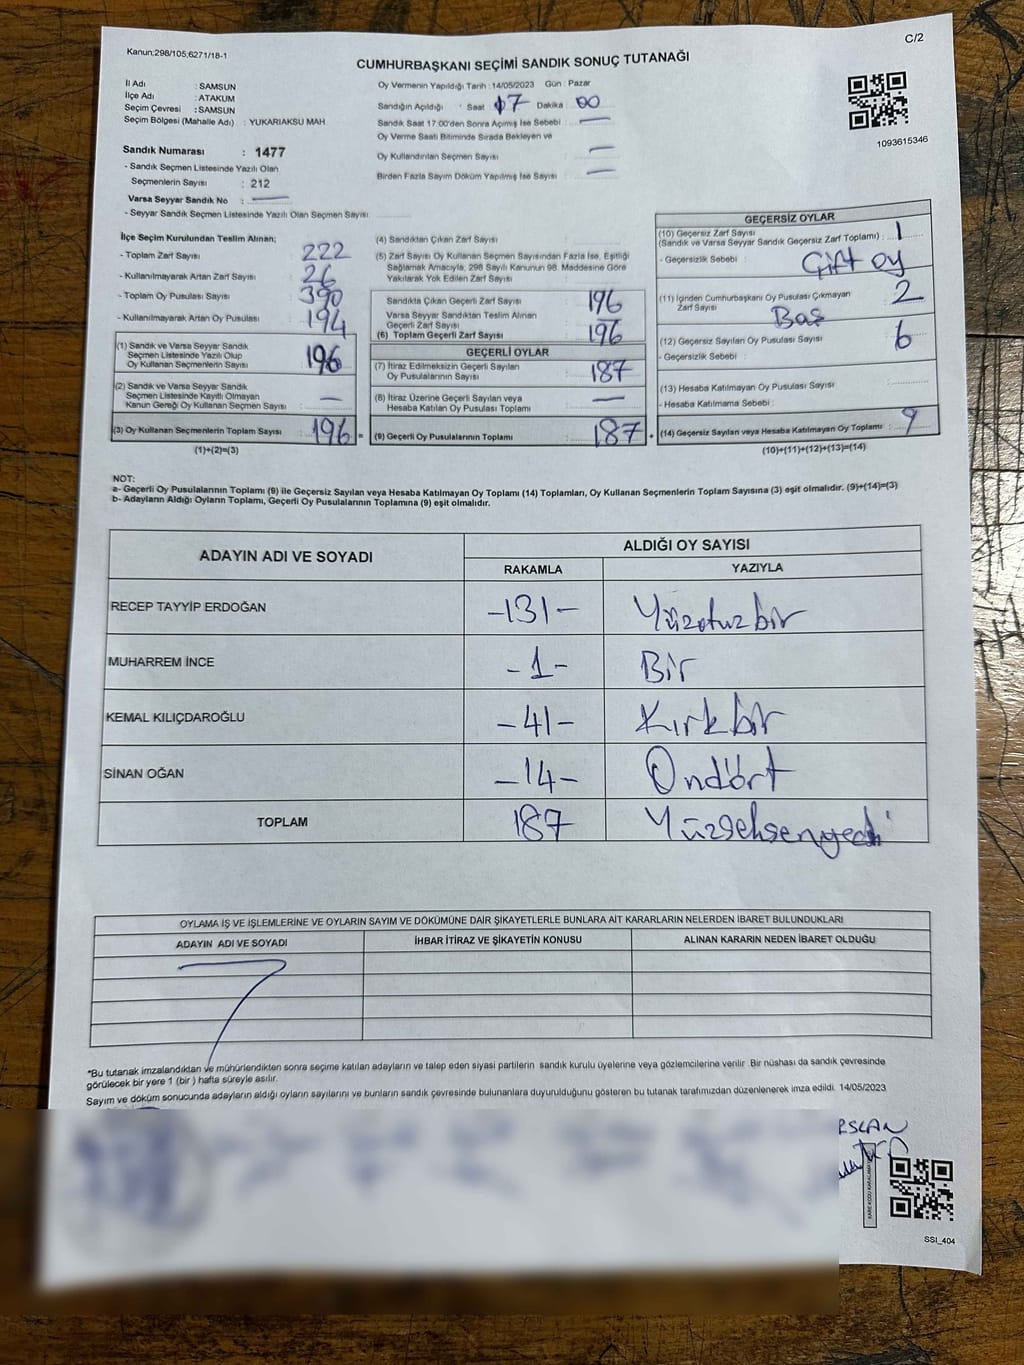 Kanun:298/105;6271/18-1
C/2
CUMHURBAŞKANI SEÇİMİ SANDIK SONUÇ TUTANAĞI
İl Adı : SAMSUN
İlçe Adı : ATAKUM
Seçim Çevresi : SAMSUN
Seçim Bölgesi (Mahalle Adı) : YUKARIAKSU MAH
Sandık Numarası : 1477
- Sandık Seçmen Listesinde Yazılı Olan
Seçmenlerin Sayısı : 212
Varsa Seyyar Sandık No : —
- Seyyar Sandık Seçmen Listesinde Yazılı Olan Seçmen Sayısı
Oy Vermenin Yapıldığı Tarih : 14/05/2023 Gün : Pazar
Sandığın Açıldığı : Saat 17 Dakika : 00
Sandık Saat 17:00'den Sonra Açımış İse Sebebi : —
Oy Verme Saati Bitiminde Sırada Bekleyen ve
Oy Kullandırılan Seçmen Sayısı : —
Birden Fazla Sayım Döküm Yapılmış İse Sayısı : —
1093615346
İlçe Seçim Kurulundan Teslim Alınan;
- Toplam Zarf Sayısı : 222
- Kullanılmayarak Artan Zarf Sayısı : 26
- Toplam Oy Pusulası Sayısı : 390
- Kullanılmayarak Artan Oy Pusulası : 194
(1) Sandık ve Varsa Seyyar Sandık
Seçmen Listesinde Yazılı Olup
Oy Kullanan Seçmenlerin Sayısı : 196
(2) Sandık ve Varsa Seyyar Sandık
Seçmen Listesinde Kayıtlı Olmayan
Kanun Gereği Oy Kullanan Seçmen Sayısı : —
(3) Oy Kullanan Seçmenlerin Toplam Sayısı : 196 =
(1)+(2)=(3)
(4) Sandıktan Çıkan Zarf Sayısı :
(5) Zarf Sayısı Oy Kullanan Seçmen Sayısından Fazla İse, Eşitliği
Sağlamak Amacıyla, 298 Sayılı Kanunun 98. Maddesine Göre
Yakılarak Yok Edilen Zarf Sayısı :
Sandıkta Çıkan Geçerli Zarf Sayısı : 196
Varsa Seyyar Sandıktan Teslim Alınan
Geçerli Zarf Sayısı :
(6) Toplam Geçerli Zarf Sayısı : 196
GEÇERLİ OYLAR
(7) İtiraz Edilmeksizin Geçerli Sayılan
Oy Pusulalarının Sayısı : 187
(8) İtiraz Üzerine Geçerli Sayılan veya
Hesaba Katılan Oy Pusulası Toplamı : —
(9) Geçerli Oy Pusulalarının Toplamı : 187 +
GEÇERSİZ OYLAR
(10) Geçersiz Zarf Sayısı
(Sandık ve Varsa Seyyar Sandık Geçersiz Zarf Toplamı) : 1
- Geçersizlik Sebebi : Çift oy
(11) İçinden Cumhurbaşkanı Oy Pusulası Çıkmayan
Zarf Sayısı : 2
Boş
(12) Geçersiz Sayılan Oy Pusulası Sayısı : 6
- Geçersizlik Sebebi :
(13) Hesaba Katılmayan Oy Pusulası Sayısı :
- Hesaba Katılmama Sebebi :
(14) Geçersiz Sayılan veya Hesaba Katılmayan Oy Toplamı : 9
(10)+(11)+(12)+(13)=(14)
NOT:
a- Geçerli Oy Pusulalarının Toplamı (9) ile Geçersiz Sayılan veya Hesaba Katılmayan Oy Toplamı (14) Toplamları, Oy Kullanan Seçmenlerin Toplam Sayısına (3) eşit olmalıdır. (9)+(14)=(3)
b- Adayların Aldığı Oyların Toplamı, Geçerli Oy Pusulalarının Toplamına (9) eşit olmalıdır.
ADAYIN ADI VE SOYADI ALDIĞI OY SAYISI
RAKAMLA YAZIYLA
RECEP TAYYİP ERDOĞAN -131- Yüzotuzbir
MUHARREM İNCE -1- Bir
KEMAL KILIÇDAROĞLU -41- Kırkbir
SİNAN OĞAN -14- Ondört
TOPLAM 187 Yüzsehsenyedi
OYLAMA İŞ VE İŞLEMLERİNE VE OYLARIN SAYIM VE DÖKÜMÜNE DAİR ŞİKAYETLERLE BUNLARA AİT KARARLARIN NELERDEN İBARET BULUNDUKLARI
ADAYIN ADI VE SOYADI İHBAR İTİRAZ VE ŞİKAYETİN KONUSU ALINAN KARARIN NEDEN İBARET OLDUĞU
*Bu tutanak imzalandıktan ve mühürlendikten sonra seçime katılan adayların ve talep eden siyasi partilerin sandık kurulu üyelerine veya gözlemcilerine verilir. Bir nüshası da sandık çevresinde
görülecek bir yere 1 (bir ) hafta süreyle asılır.
Sayım ve döküm sonucunda adayların aldığı oyların sayılarını ve bunların sandık çevresinde bulunanlara duyurulduğunu gösteren bu tutanak tarafımızdan düzenlenerek imza edildi. 14/05/2023
RSLAN
SSI_404